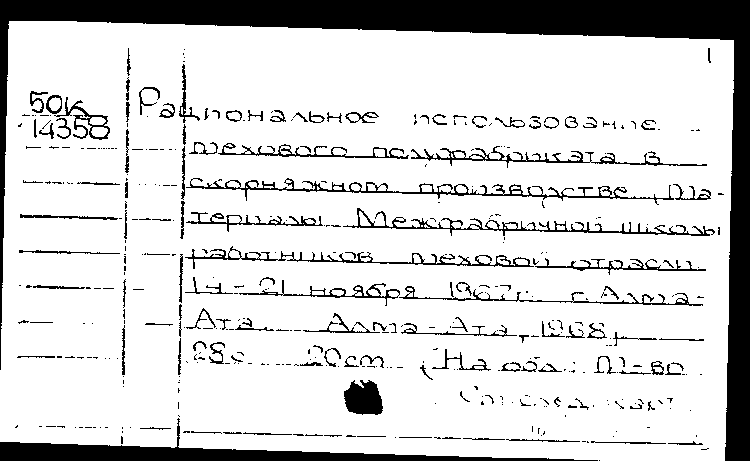 1
50К
14358
Рациональное использование
мехового полуфабриката в
скорняжном производстве. Ма-
териалы Межфабричной школы
работников меховой отрасли.
14-21 ноября 1967г. г. Алма-
Ата. Алма-Ата, 1968,
28с. 20см. (На обл.: М-во
См. след. карт.